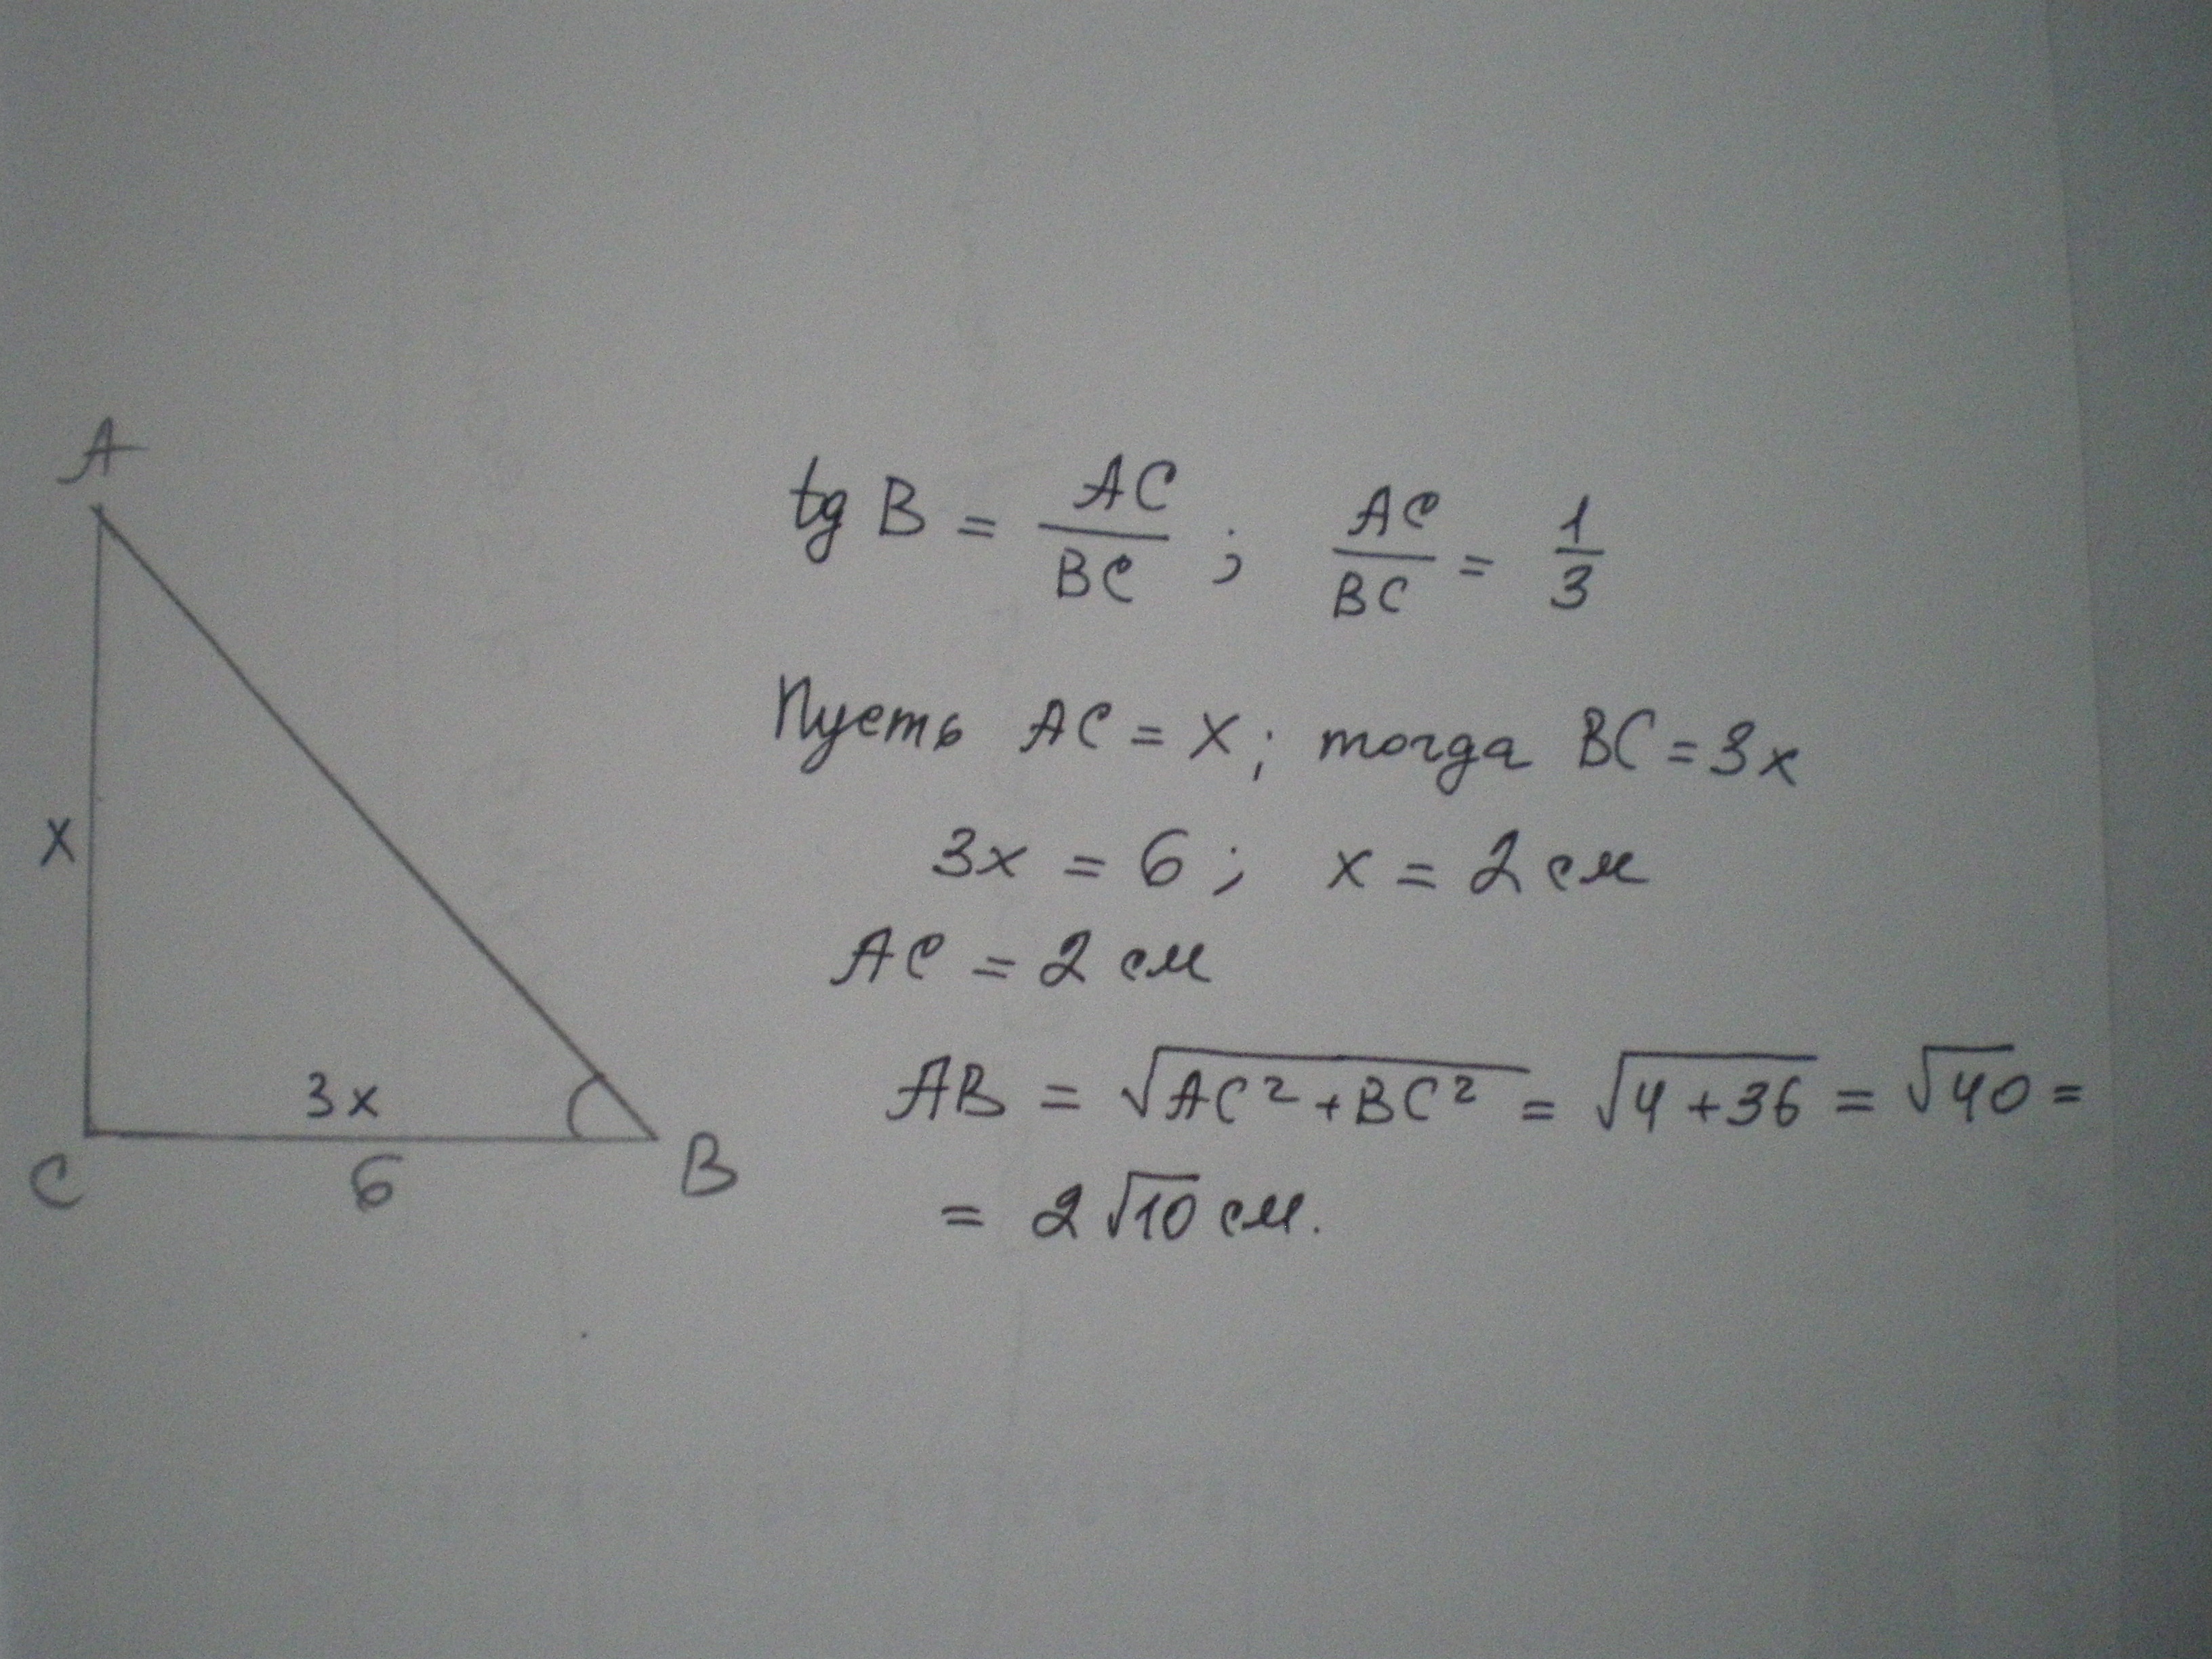 A
x
3x
C
6
B
tg B = AC/BC ; AC/BC = 1/3
Пусть AC = x; тогда BC = 3x
3x = 6; x = 2 см
AC = 2 см
AB = √(AC² + BC²) = √(4 + 36) = √40 =
= 2√10 см.